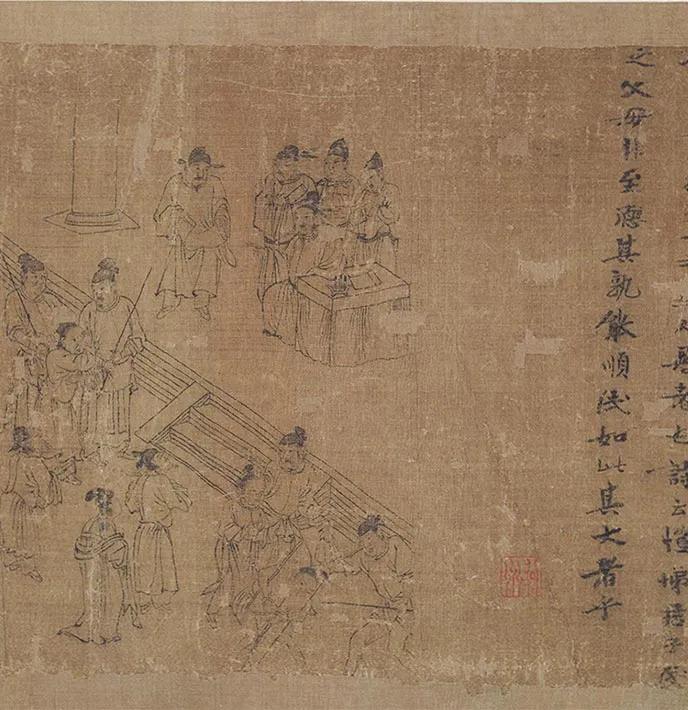 君者也詩云愷悌君子民
之父母非至德其孰能順民如此其大者乎